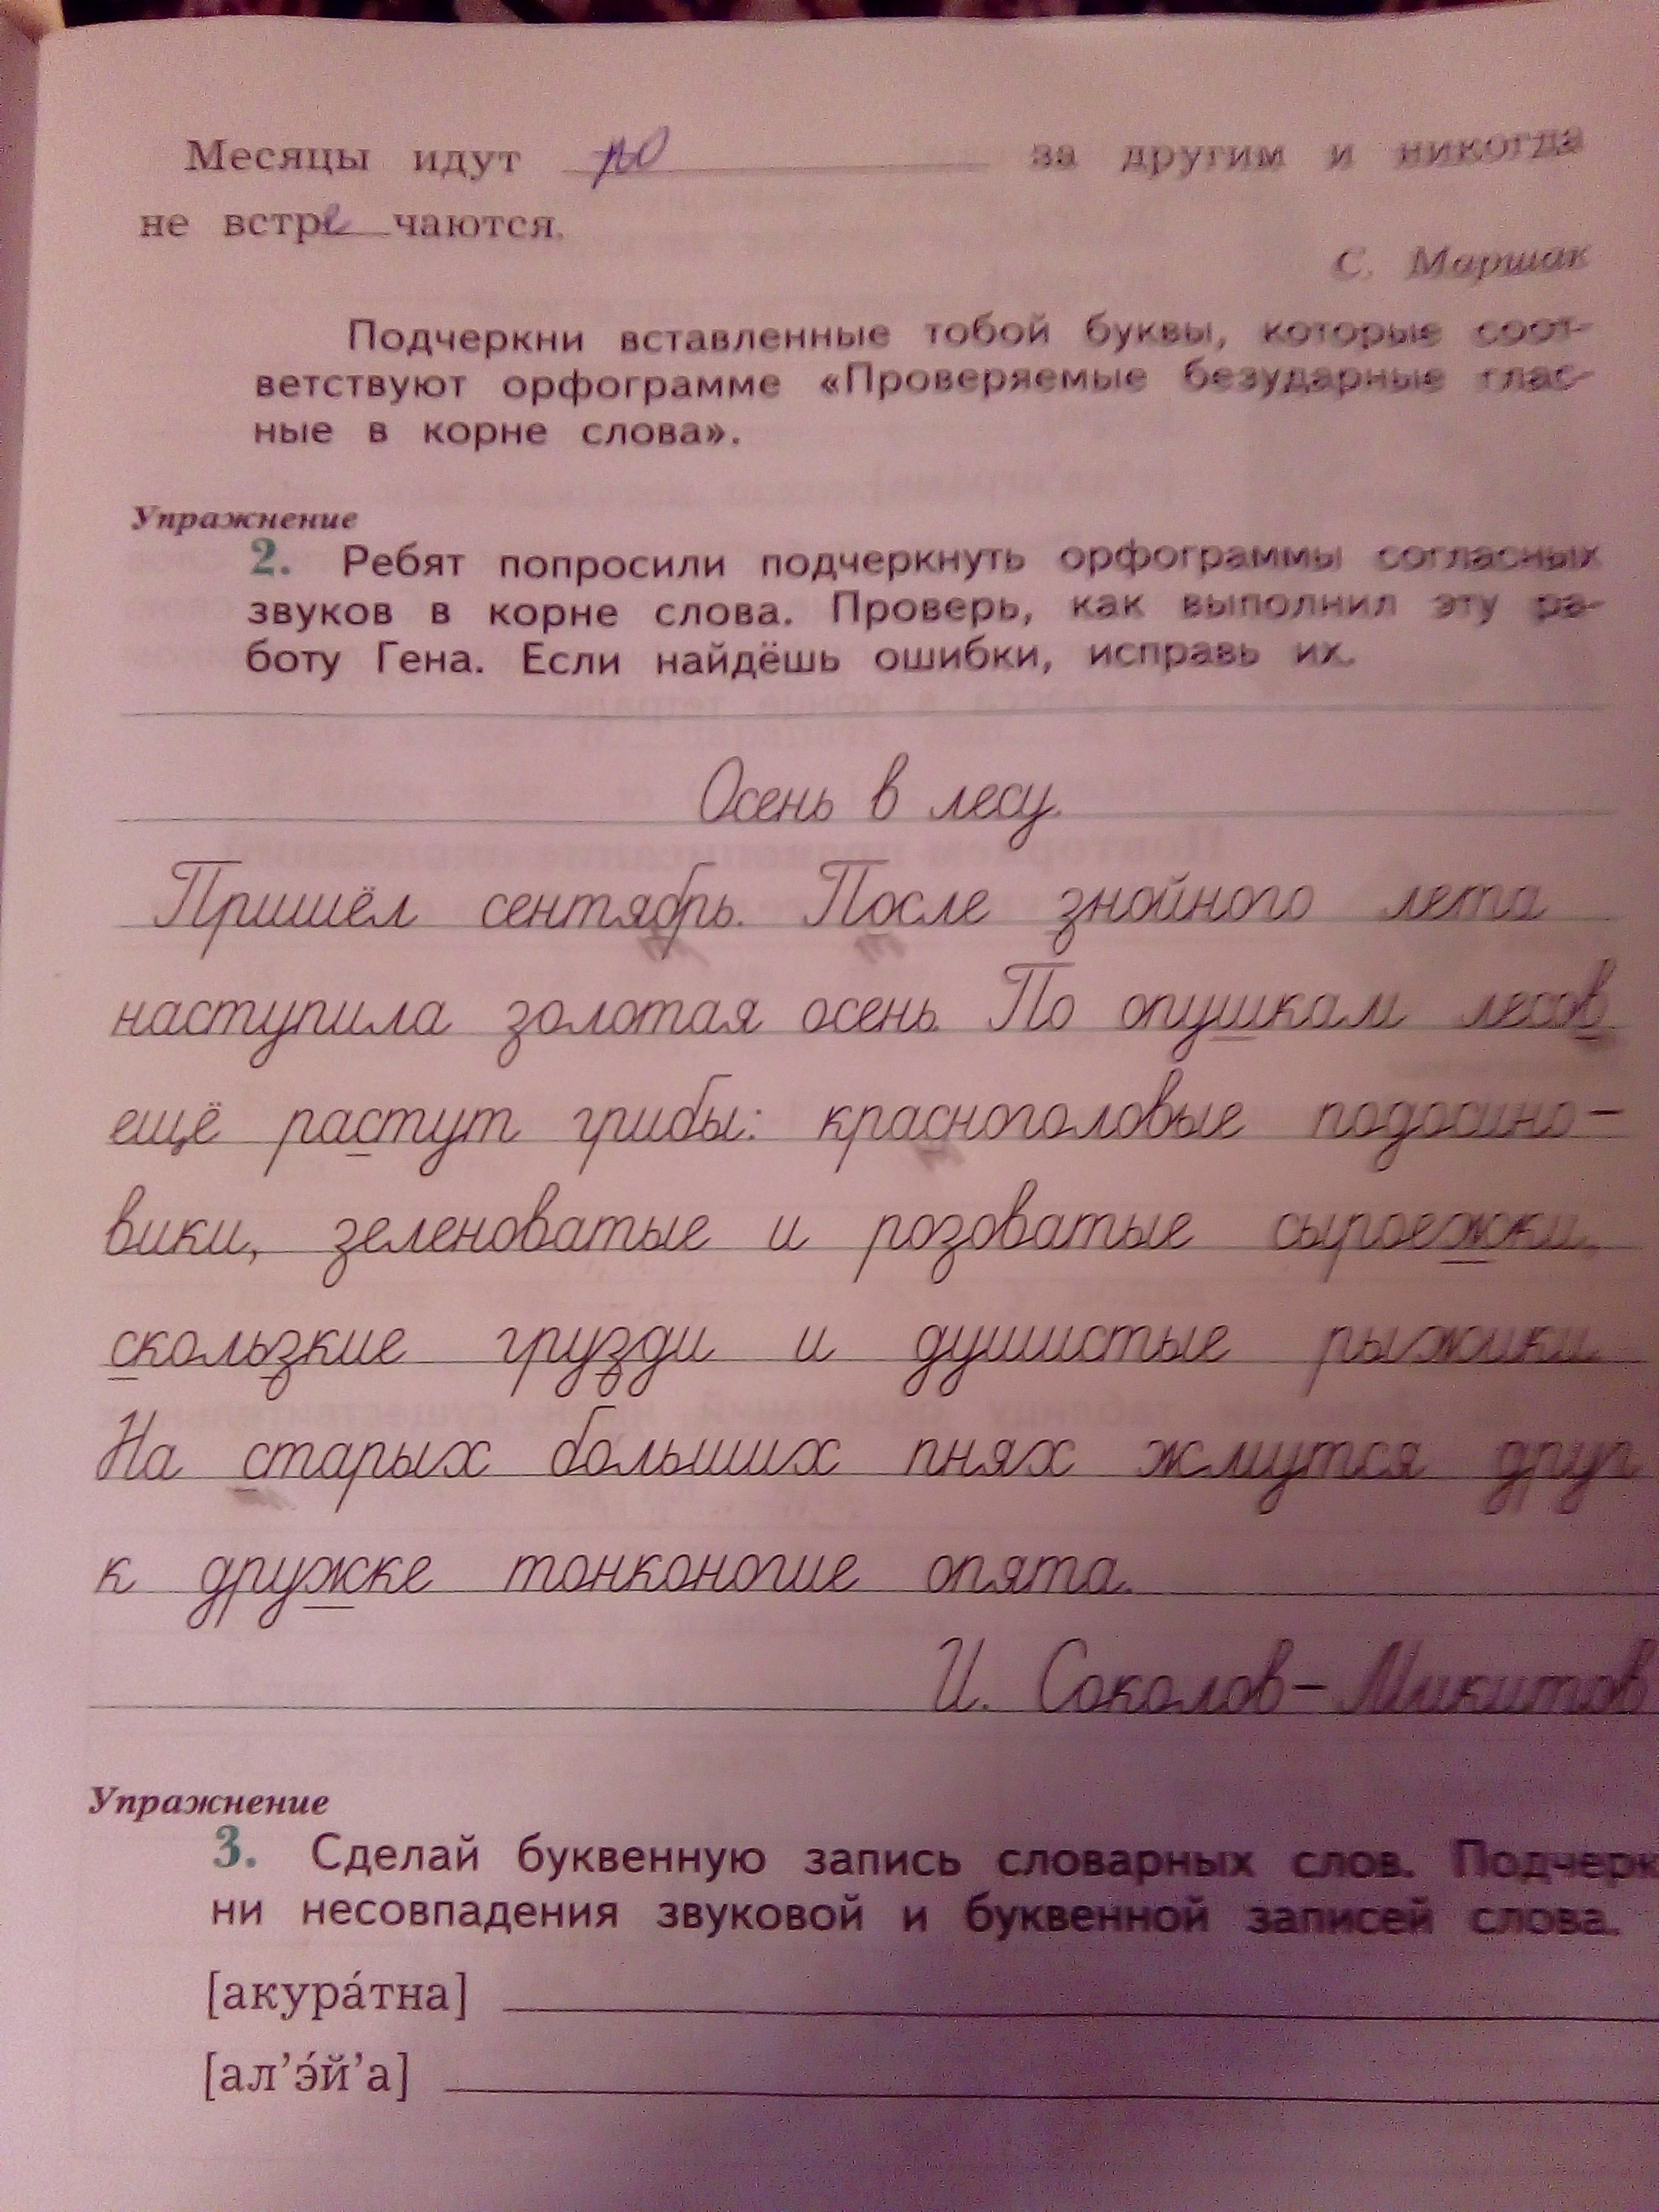 Месяцы идут по за другим и никогда
не встре чаются.
С. Маршак
Подчеркни вставленные тобой буквы, которые соот-
ветствуют орфограмме «Проверяемые безударные глас-
ные в корне слова».
Упражнение
2. Ребят попросили подчеркнуть орфограммы согласных
звуков в корне слова. Проверь, как выполнил эту ра-
боту Гена. Если найдёшь ошибки, исправь их.
Осень в лесу.
Пришёл сентябрь. После знойного лета
наступила золотая осень. По опушкам лесов
ещё растут грибы: красноголовые подосино-
вики, зеленоватые и розоватые сыроежки,
скользкие грузди и душистые рыжики.
На старых больших пнях жмутся друг
к дружке тонконогие опята.
И. Соколов-Микитов
Упражнение
3. Сделай буквенную запись словарных слов. Подчерк
ни несовпадения звуковой и буквенной записей слова.
[акура́тна]
[ал’э́й’а]